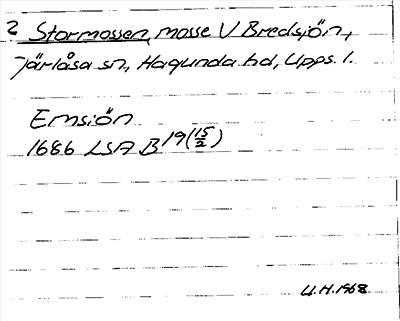 2 Stormossen, mosse V Bredsjön,
Järlåsa sn, Hagunda hd, Upps. l.
Emsiön
1686 LSA B19(15/2)
U.H. 1968